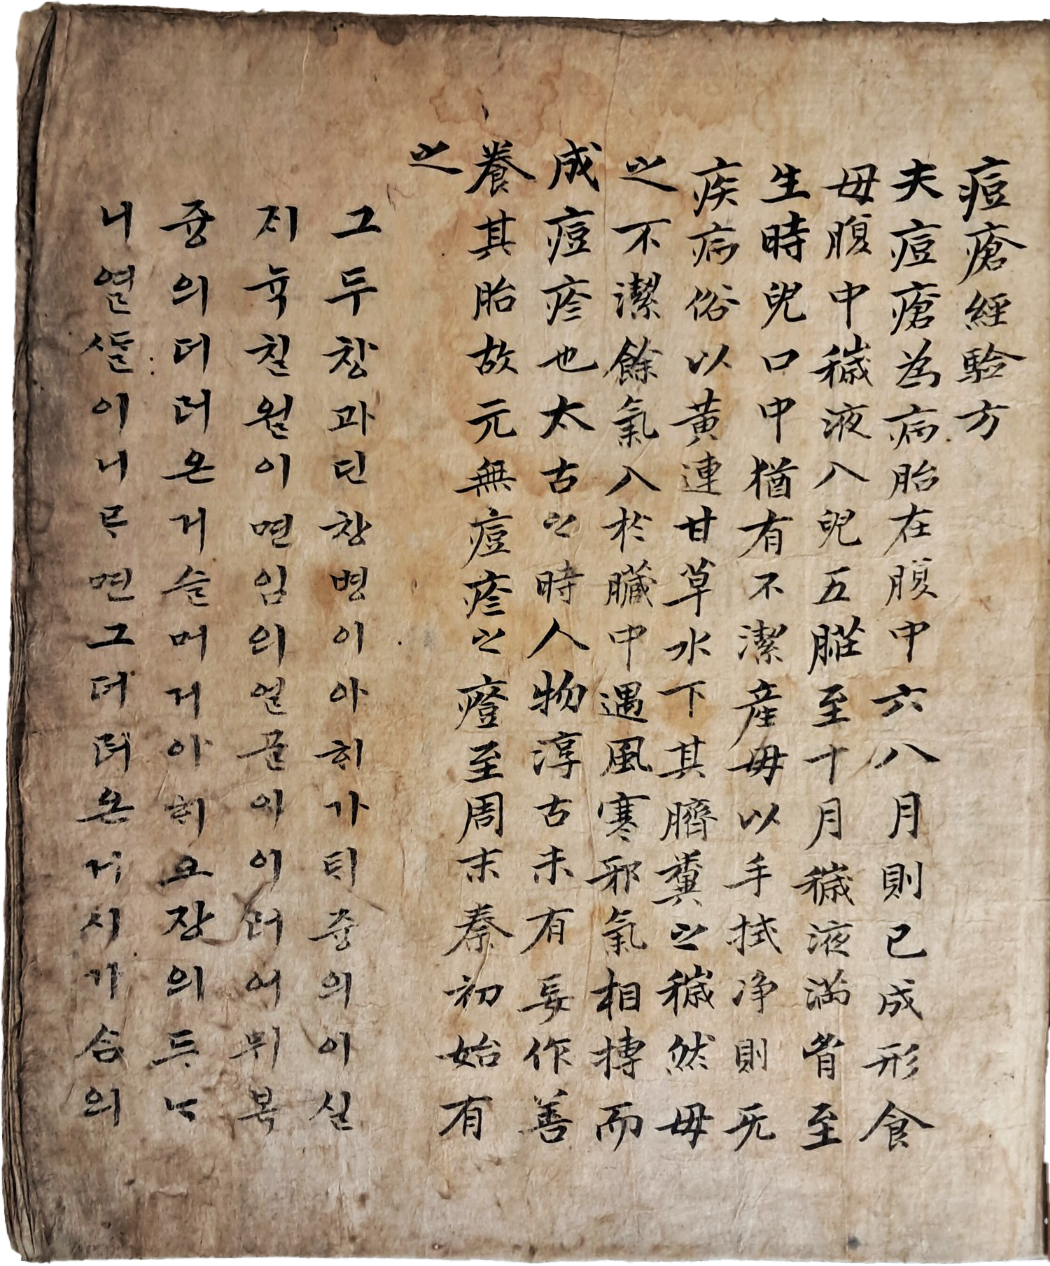 痘瘡經驗方
夫痘瘡為病胎在腹中六八月則已成形食
母腹中穢液入兒五臟至十月穢液滿胃至
生時兒口中猶有不潔産母以手拭净則无
疾病俗以黃連甘草水下其臍糞之穢然毋
之不潔餘氣入於臟中遇風寒邪氣相搏而
成痘疹也太古之時人物淳古未有妄作善
養其胎故元無痘疹之證至周末秦初始有
之
그두창과딘창병이아히가틱즁의이실
지뉵칠월이면임의얼골이이러여뫼복
즁의더러온거슬머거아히오장의드
니열들이니르면그더러온거시가슴의